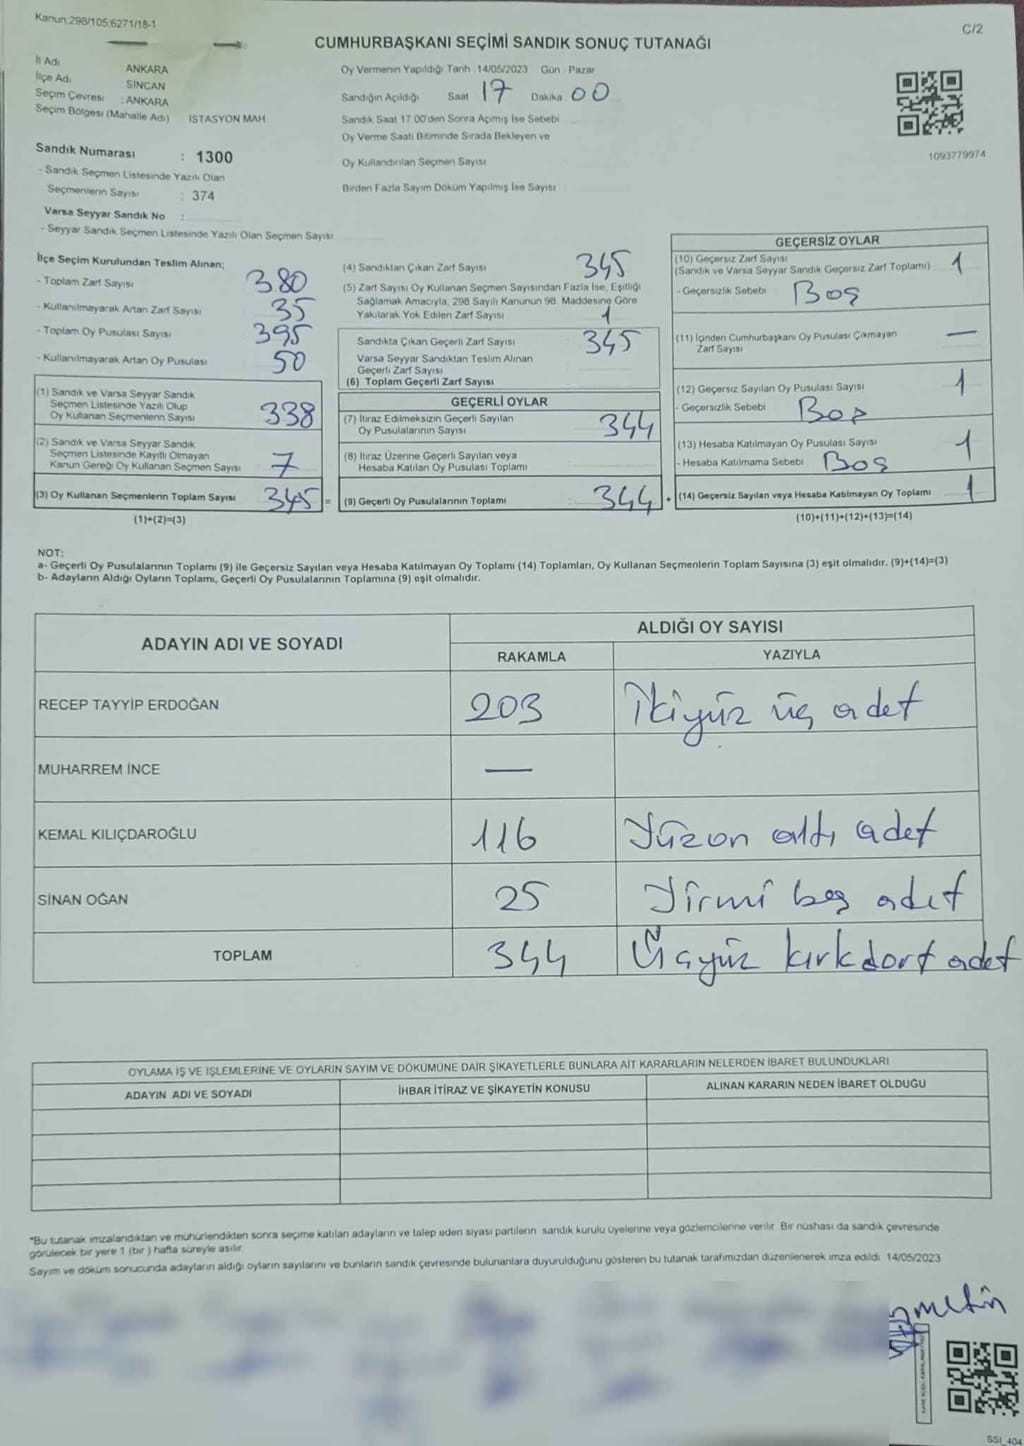 Kanun.298/105;6271/18-1
C/2
CUMHURBAŞKANI SEÇİMİ SANDIK SONUÇ TUTANAĞI
İl Adı ANKARA
İlçe Adı SİNCAN
Seçim Çevresi : ANKARA
Seçim Bölgesi (Mahalle Adı) İSTASYON MAH
Sandık Numarası : 1300
- Sandık Seçmen Listesinde Yazılı Olan
Seçmenlerin Sayısı : 374
Varsa Seyyar Sandık No :
- Seyyar Sandık Seçmen Listesinde Yazılı Olan Seçmen Sayısı
Oy Vermenin Yapıldığı Tarih 14/05/2023 Gün : Pazar
Sandığın Açıldığı Saat 17 Dakika 00
Sandık Saat 17.00'den Sonra Açımış İse Sebebi
Oy Verme Saati Bitiminde Sırada Bekleyen ve
Oy Kullandırılan Seçmen Sayısı
Birden Fazla Sayım Döküm Yapılmış İse Sayısı
1093779974
İlçe Seçim Kurulundan Teslim Alınan;
- Toplam Zarf Sayısı 380
- Kullanılmayarak Artan Zarf Sayısı 35
- Toplam Oy Pusulası Sayısı 395
- Kullanılmayarak Artan Oy Pusulası 50
(1) Sandık ve Varsa Seyyar Sandık
Seçmen Listesinde Yazılı Olup
Oy Kullanan Seçmenlerin Sayısı 338
(2) Sandık ve Varsa Seyyar Sandık
Seçmen Listesinde Kayıtlı Olmayan
Kanun Gereği Oy Kullanan Seçmen Sayısı 7
(3) Oy Kullanan Seçmenlerin Toplam Sayısı 345 =
(1)+(2)=(3)
(4) Sandıktan Çıkan Zarf Sayısı 345
(5) Zarf Sayısı Oy Kullanan Seçmen Sayısından Fazla İse, Eşitliği
Sağlamak Amacıyla, 298 Sayılı Kanunun 98. Maddesine Göre
Yakılarak Yok Edilen Zarf Sayısı 1
Sandıkta Çıkan Geçerli Zarf Sayısı 345
Varsa Seyyar Sandıktan Teslim Alınan
Geçerli Zarf Sayısı
(6) Toplam Geçerli Zarf Sayısı
GEÇERLİ OYLAR
(7) İtiraz Edilmeksizin Geçerli Sayılan
Oy Pusulalarının Sayısı 344
(8) İtiraz Üzerine Geçerli Sayılan veya
Hesaba Katılan Oy Pusulası Toplamı
(9) Geçerli Oy Pusulalarının Toplamı : 344 +
GEÇERSİZ OYLAR
(10) Geçersiz Zarf Sayısı 1
(Sandık ve Varsa Seyyar Sandık Geçersiz Zarf Toplamı)
- Geçersizlik Sebebi Boş
(11) İçinden Cumhurbaşkanı Oy Pusulası Çıkmayan —
Zarf Sayısı
(12) Geçersiz Sayılan Oy Pusulası Sayısı 1
- Geçersizlik Sebebi Boş
(13) Hesaba Katılmayan Oy Pusulası Sayısı 1
- Hesaba Katılmama Sebebi Boş
(14) Geçersiz Sayılan veya Hesaba Katılmayan Oy Toplamı 1
(10)+(11)+(12)+(13)=(14)
NOT:
a- Geçerli Oy Pusulalarının Toplamı (9) ile Geçersiz Sayılan veya Hesaba Katılmayan Oy Toplamı (14) Toplamları, Oy Kullanan Seçmenlerin Toplam Sayısına (3) eşit olmalıdır. (9)+(14)=(3)
b- Adayların Aldığı Oyların Toplamı, Geçerli Oy Pusulalarının Toplamına (9) eşit olmalıdır.
ADAYIN ADI VE SOYADI ALDIĞI OY SAYISI
RAKAMLA YAZIYLA
RECEP TAYYİP ERDOĞAN 203 İkiyüz üç adet
MUHARREM İNCE —
KEMAL KILIÇDAROĞLU 116 Yüzon altı adet
SİNAN OĞAN 25 Yirmi beş adet
TOPLAM 344 Üçyüz kırkdört adet
OYLAMA İŞ VE İŞLEMLERİNE VE OYLARIN SAYIM VE DÖKÜMÜNE DAİR ŞİKAYETLERLE BUNLARA AİT KARARLARIN NELERDEN İBARET BULUNDUKLARI
ADAYIN ADI VE SOYADI İHBAR İTİRAZ VE ŞİKAYETİN KONUSU ALINAN KARARIN NEDEN İBARET OLDUĞU
*Bu tutanak imzalandıktan ve mühürlendikten sonra seçime katılan adayların ve talep eden siyasi partilerin sandık kurulu üyelerine veya gözlemcilerine verilir. Bir nüshası da sandık çevresinde
görülecek bir yere 1 (bir ) hafta süreyle asılır.
Sayım ve döküm sonucunda adayların aldığı oyların sayılarını ve bunların sandık çevresinde bulunanlara duyurulduğunu gösteren bu tutanak tarafımızdan düzenlenerek imza edildi. 14/05/2023
SSİ_404